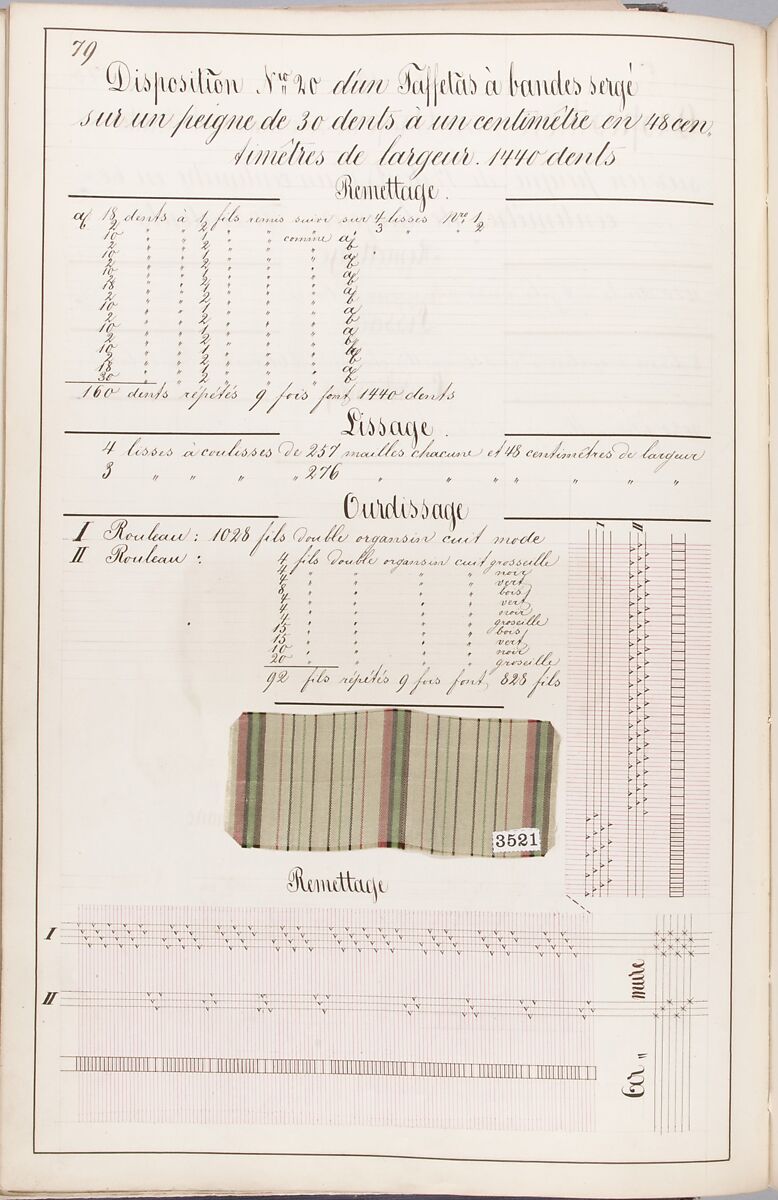 79
Disposition Nro 20 d'un Taffetas à bandes sergé
sur un peigne de 30 dents à un centimêtre en 48 cen,
timêtres de largeur. 1440 dents
Remettage.
a 18 dents à 1 fils remis suivi sur 4 lisses Nro 1
b 2 " " 2 " " " " 3 " " 2
10 " " 1 " " comme a
2 " " 2 " " " b
10 " " 1 " " " a
2 " " 2 " " " b
10 " " 1 " " " a
2 " " 2 " " " b
18 " " 1 " " " a
2 " " 2 " " " b
10 " " 1 " " " a
2 " " 2 " " " b
10 " " 1 " " " a
2 " " 2 " " " b
10 " " 1 " " " a
2 " " 2 " " " b
18 " " 1 " " " a
30 " " 2 " " " b
160 dents répétés 9 fois font 1440 dents
Lissage.
4 lisses à coulisses de 257 mailles chacune et 48 centimêtres de largeur
3 " " " " 276 " " " " " " "
Ourdissage
I Rouleau: 1028 fils double organsin cuit mode
II Rouleau: 4 fils double organsin cuit grosseille
4 " " " " noir
4 " " " " vert
8 " " " " bois
4 " " " " vert
4 " " " " noir
4 " " " " groseille
15 " " " " bois
15 " " " " vert
10 " " " " noir
20 " " " " groseille
92 fils répétés 9 fois font 828 fils
I II
3521
Remettage
I
II
Ar " mure